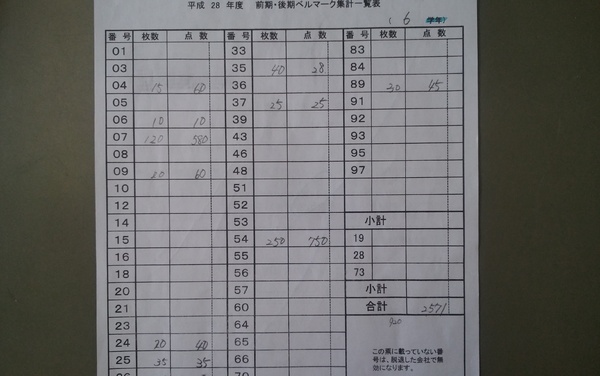 平成 28 年度 前期・後期ベルマーク集計一覧表
( 6 学年)
番号 枚数 点数 番号 枚数 点数 番号 枚数 点数
01 33 83
03 35 40 28 84
04 15 60 36 89 30 45
05 37 25 25 91
06 10 10 39 92
07 120 580 43 93
08 46 95
09 20 60 48 97
10 51
12 52
14 53 小計
15 54 250 750 19
16 55 28
18 56 73
20 57 小計
21 60 合計 2571
23 64 920
24 20 40 65
25 35 35 66
この票に載っていない番
号は、脱退した会社で無
効になります。
70